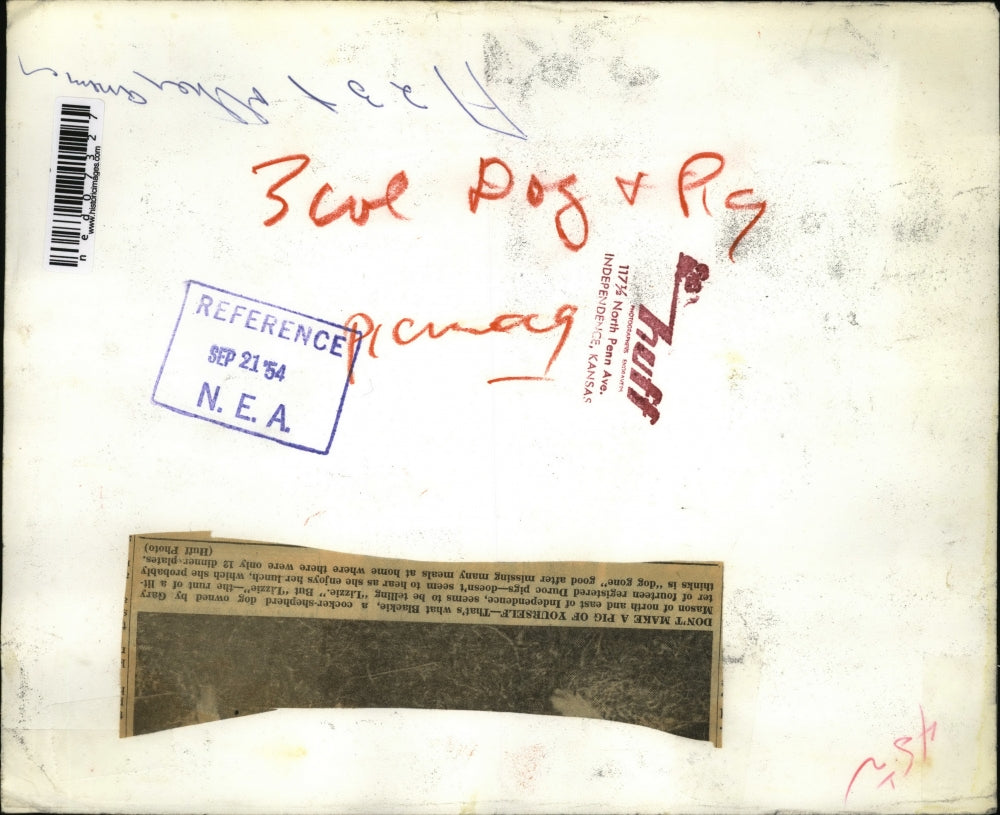 A 23 X other animals
3 col Dog + Pig
Picmag
REFERENCE
SEP 21 '54
N. E. A.
huff
PHOTOGRAPHERS ENGRAVERS
117½ North Penn Ave.
INDEPENDENCE, KANSAS
www.historicimages.com
DON'T MAKE A PIG OF YOURSELF—That's what Blackie, a cocker-shepherd dog owned by Gary
Mason of north and east of Independence, seems to be telling "Lizzie." But "Lizzie"—the runt of a lit-
ter of fourteen registered Duroc pigs—doesn't seem to hear as she enjoys her lunch, which she probably
thinks is "dog gone" good after missing many meals at home where there were only 12 dinner plates.
(Huff Photo)